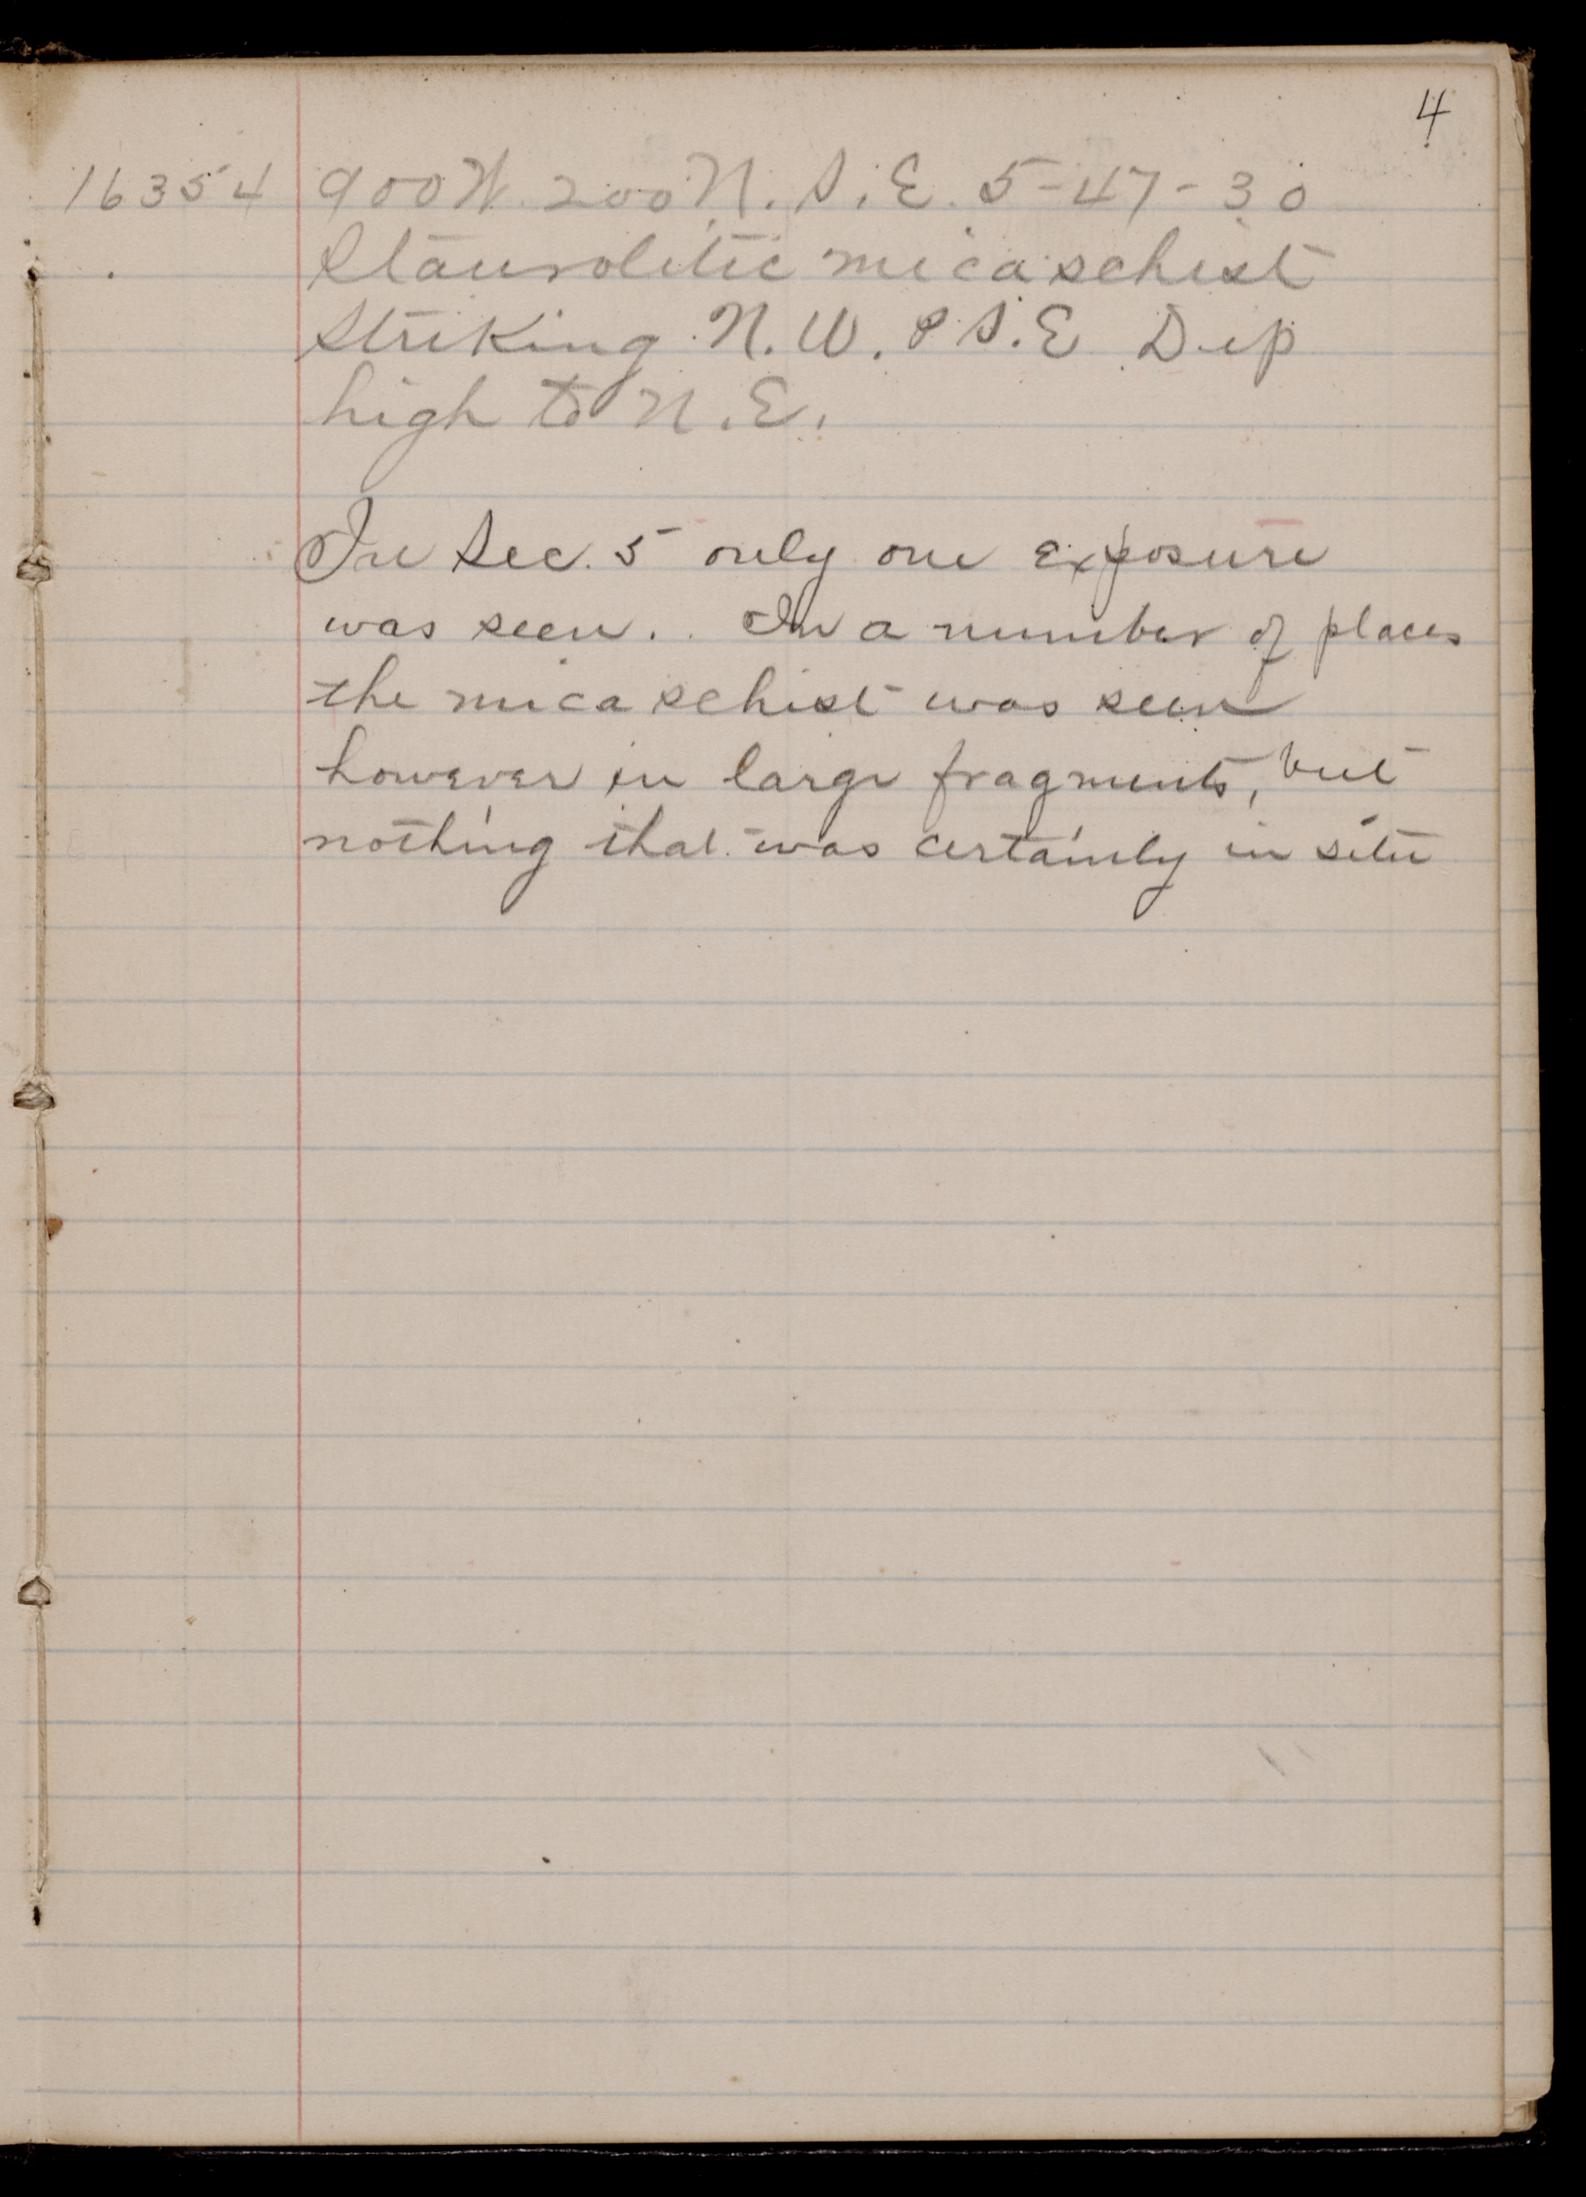 4
16354 900 W. 200 N. S. E. 5-47-30
Staurolitic mica schist
striking N. W. & S. E Dip
high to N. E.
In Sec. 5 only one exposure
was seen. In a number of places
the mica schist was seen
however in large fragments, but
nothing that was certainly in situ